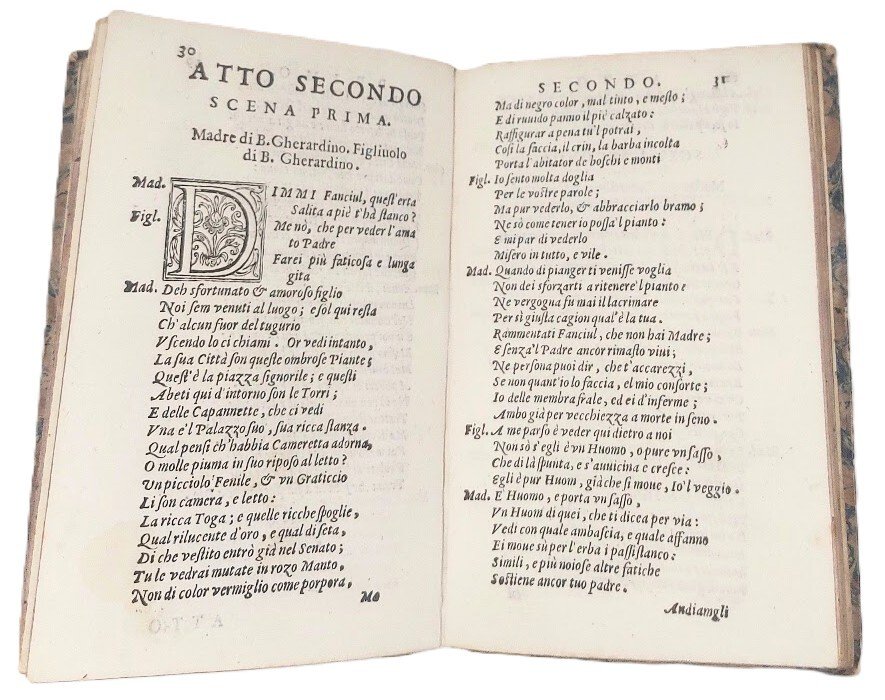 30
ATTO SECONDO
SCENA PRIMA.
Madre di B. Gherardino. Figliuolo
di B. Gherardino.
Mad. DIMMI Fanciul, quest'erta
Salita a piè t'hà stanco?
Figl. Me nò, che per veder l'ama
to Padre
Farei più faticosa e lunga
gita
Mad. Deh sfortunato & amoroso figlio
Noi sem venuti al luogo; e sol qui resta
Ch'alcun fuor del tugurio
Vscendo lo ci chiami. Or vedi intanto,
La sua Città son queste ombrose Piante;
Quest'è la piazza signorile; e questi
Abeti qui d'intorno son le Torri;
E delle Capannette, che ci vedi
Vna e'l Palazzo suo, sua ricca stanza.
Qual pensi ch'habbia Cameretta adorna,
O molle piuma in suo riposo al letto?
Vn picciolo Fenile, & vn Graticcio
Li son camera, e letto:
La ricca Toga; e quelle ricche spoglie,
Qual rilucente d'oro, e qual di seta,
Di che vestito entrò già nel Senato;
Tu le vedrai mutate in rozo Manto,
Non di color vermiglio come porpora,
Ma
SECONDO. 31
Ma di negro color, mal tinto, e mesto;
E di ruuido panno il piè calzato:
Raffigurar a pena tu'l potrai,
Così la faccia, il crin, la barba incolta
Porta l'abitator de boschi e monti
Figl. Io sento molta doglia
Per le vostre parole;
Ma pur vederlo, & abbracciarlo bramo;
Ne sò come tener io possa'l pianto:
E mi par di vederlo
Misero in tutto, e vile.
Mad. Quando di pianger ti venisse voglia
Non dei sforzarti a ritenere'l pianto e
Ne vergogna fu mai il lacrimare
Per sì giusta cagion qual'è la tua.
Rammentati Fanciul, che non hai Madre;
E senza'l Padre ancor rimasto viui;
Ne persona puoi dir, che t'accarezzi,
Se non quant'io lo faccia, el mio consorte;
Io delle membra frale, ed ei d'inferme;
Ambo già per vecchiezza a morte in seno.
Figl. A me parso è veder qui dietro a noi
Non sò s'egli è vn Huomo, o pure vn sasso,
Che di là spunta, e s'auuicina e cresce:
Egli è pur Huom, già che si moue, Io'l veggio.
Mad. E Huomo, e porta vn sasso,
Vn Huom di quei, che ti dicea per via:
Vedi con quale ambascia, e quale affanno
Ei moue sù per l'erba i passi stanco:
Simili, e più noiose altre fatiche
Sostiene ancor tuo padre.
Andiamgli